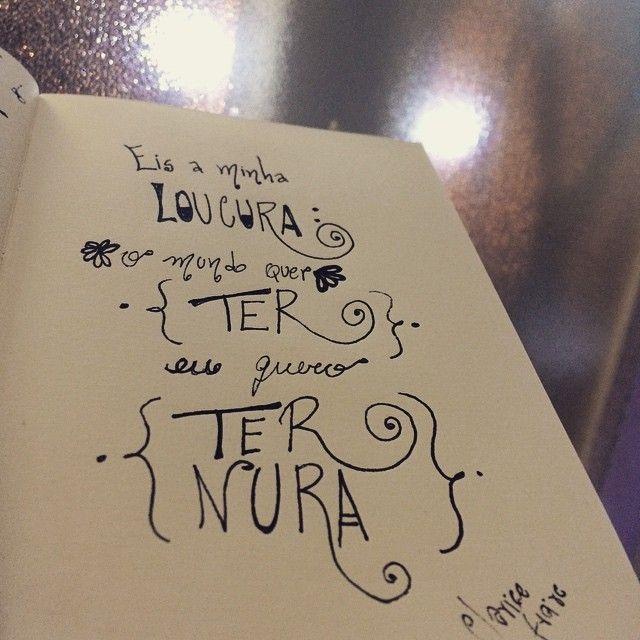 Eis a minha
LOUCURA:
o mundo quer
{TER}
eu quero
{TER
NURA}
Clarice
Freire